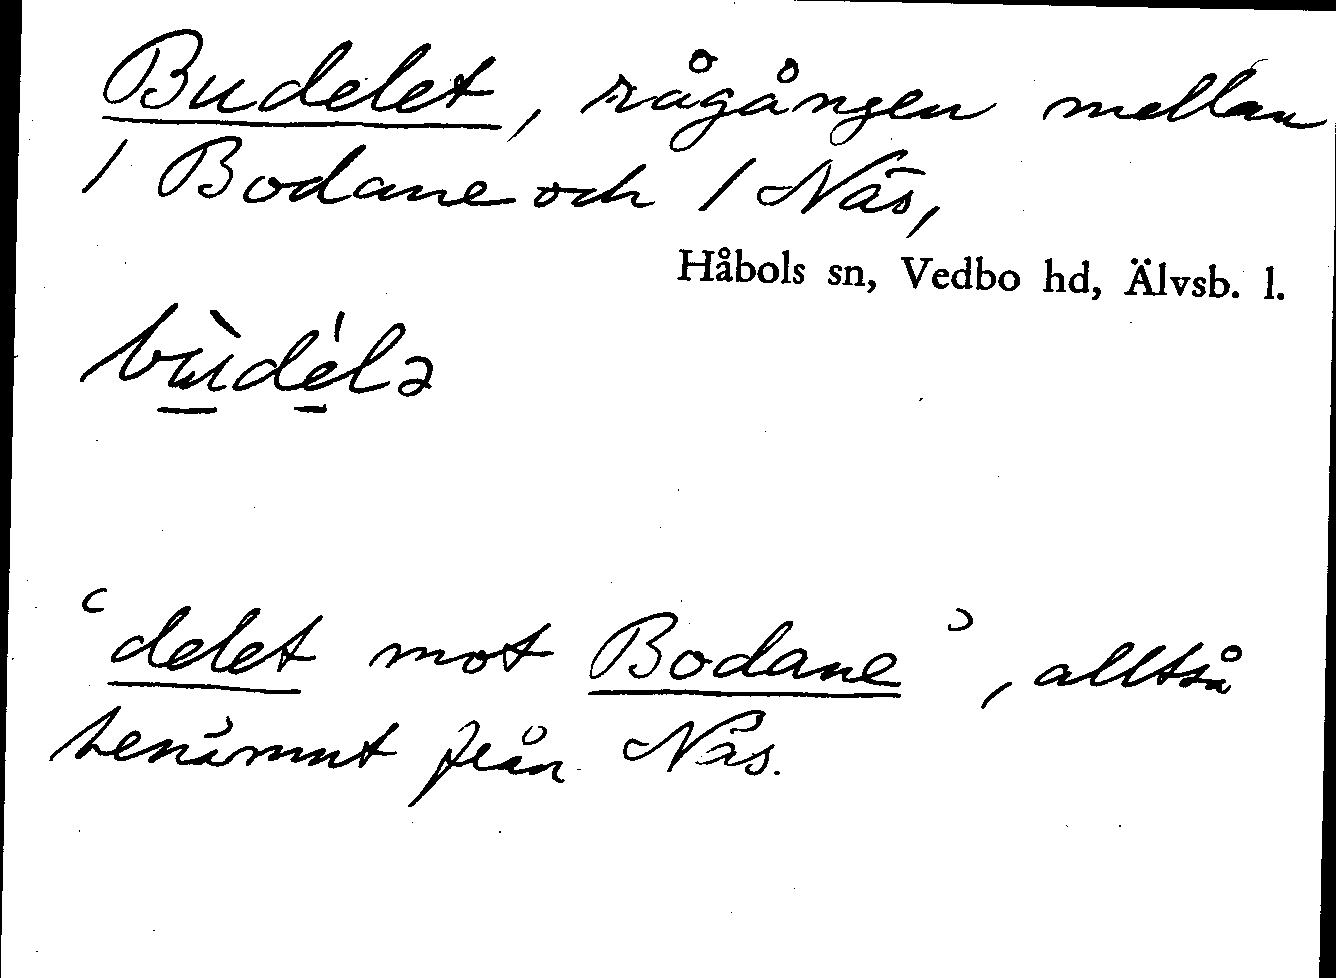 Budelet, rågången mellan
1 Bodane och 1 Näs,
Håbols sn, Vedbo hd, Älvsb. l.
bùdéḷə
‘delet mot Bodane’, alltså
benämnt från Näs.